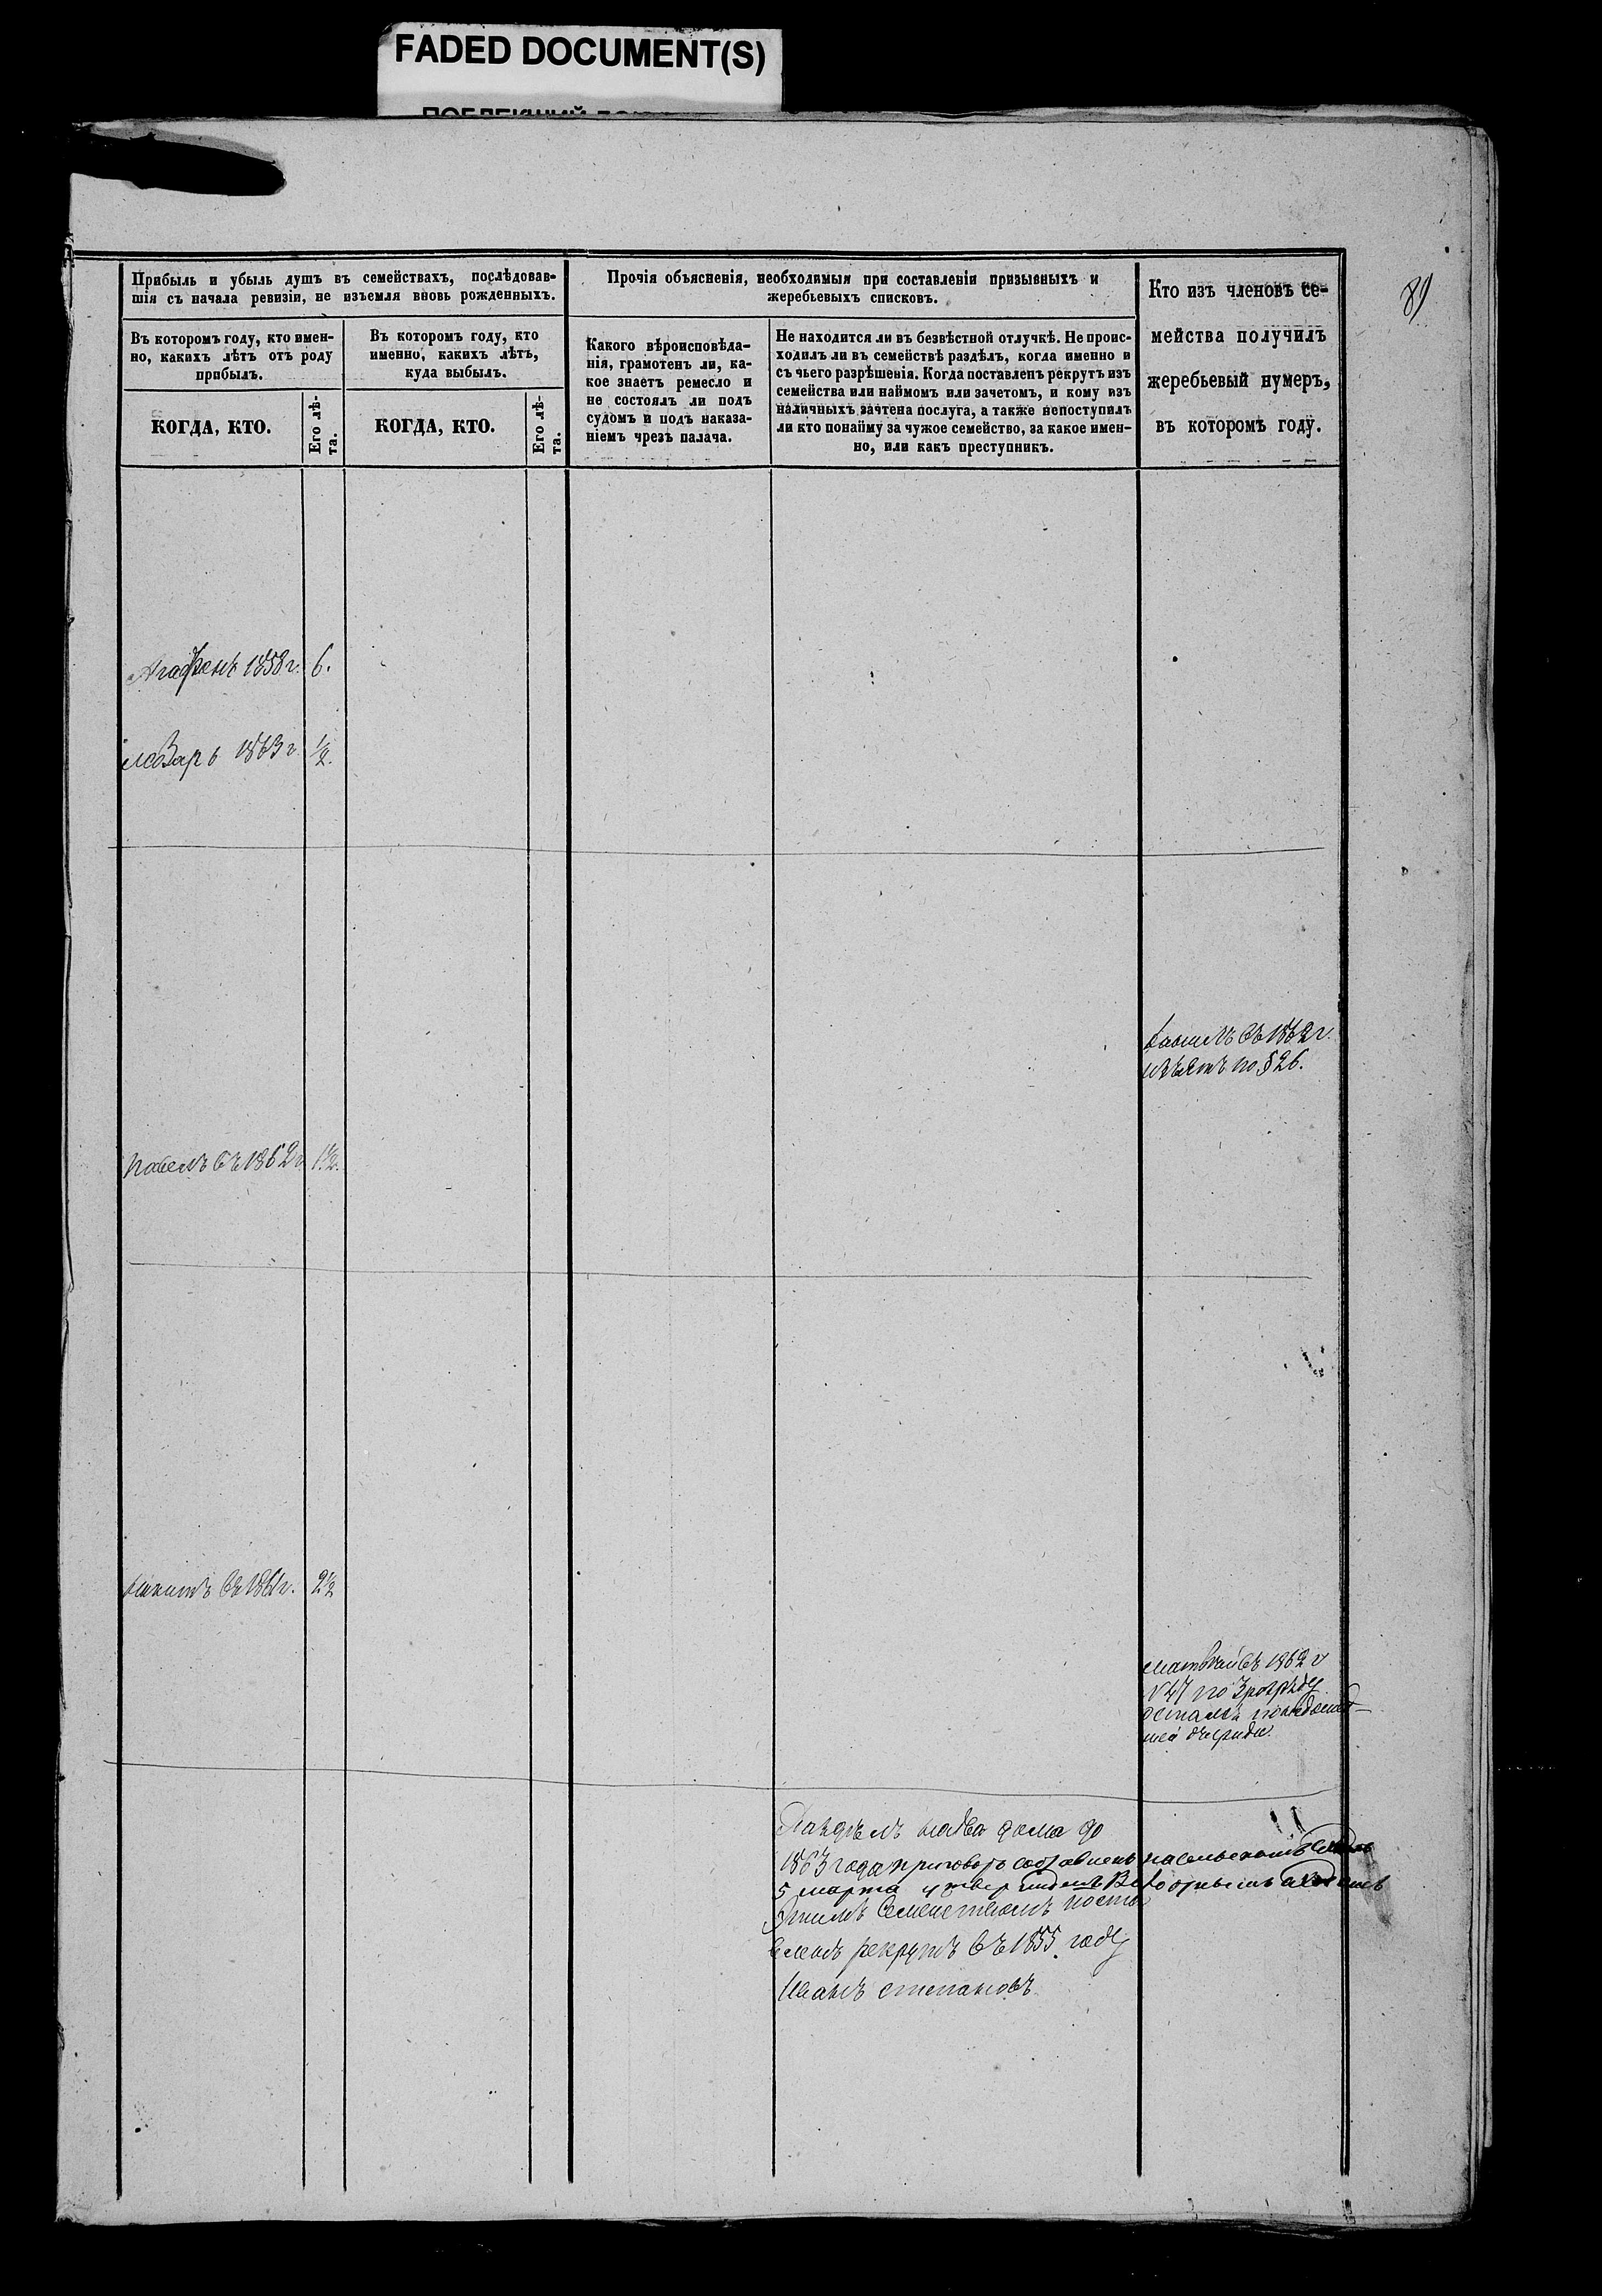 FADED DOCUMENT(S)
81
Прибыль и убыль душъ въ семействахъ, послѣдовав-
шія съ начала ревизіи, не изъемля вновь рожденныхъ.
Въ которомъ году, кто имен-
но, какихъ лѣтъ отъ роду
прибылъ.
КОГДА, КТО.
Его лѣ-
та.
Въ которомъ году, кто
именно, какихъ лѣтъ,
куда выбылъ.
КОГДА, КТО.
Его лѣ-
та.
Прочія объясненія, необходимыя при составленіи призывныхъ и
жеребьевыхъ списковъ.
Какого вѣроисповѣда-
нія, грамотенъ ли, ка-
кое знаетъ ремесло и
не состоялъ ли подъ
судомъ и подъ наказа-
ніемъ чрезъ палача.
Не находится ли въ безвѣстной отлучкѣ. Не проис-
ходилъ ли въ семействѣ раздѣлъ, когда именно и
съ чьего разрѣшенія. Когда поставленъ рекрутъ изъ
семейства или наймомъ или зачетомъ, и кому изъ
наличныхъ зачтена послуга, а также непоступилъ
ли кто понайму за чужое семейство, за какое имен-
но, или какъ преступникъ.
Кто изъ членовъ се-
мейства получилъ
жеребьевый нумеръ,
въ которомъ году.
1858 г. 6.
1863 г. ½.
въ 1862 г.
изъятъ по § 26.
Павелъ въ 1862 г. 1½.
въ 1861 г. 2½
Матвей въ 1862 г
№ 47 по 3 разряду
осталъ
шей очереди.
Раздѣлъ на два дома до
1863 года приговоръ составленъ на сельскомъ
5 марта утвержденъ
Этимъ Семействомъ поста
вленъ рекрутъ въ 1855 году
Иванъ степановъ